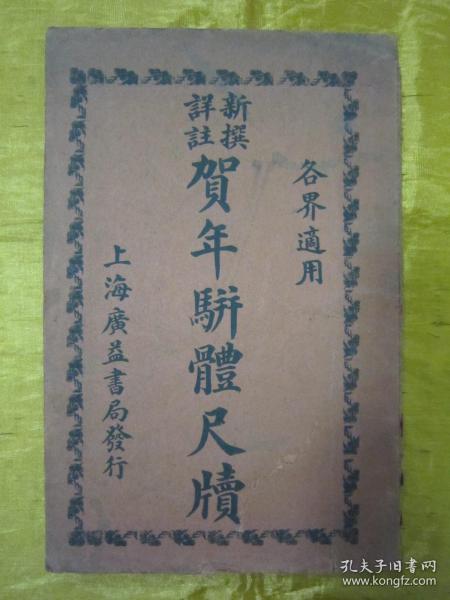 各界適用
新撰
詳註
賀年駢體尺牘
上海廣益書局發行
孔夫子旧书网
www.kongfz.com